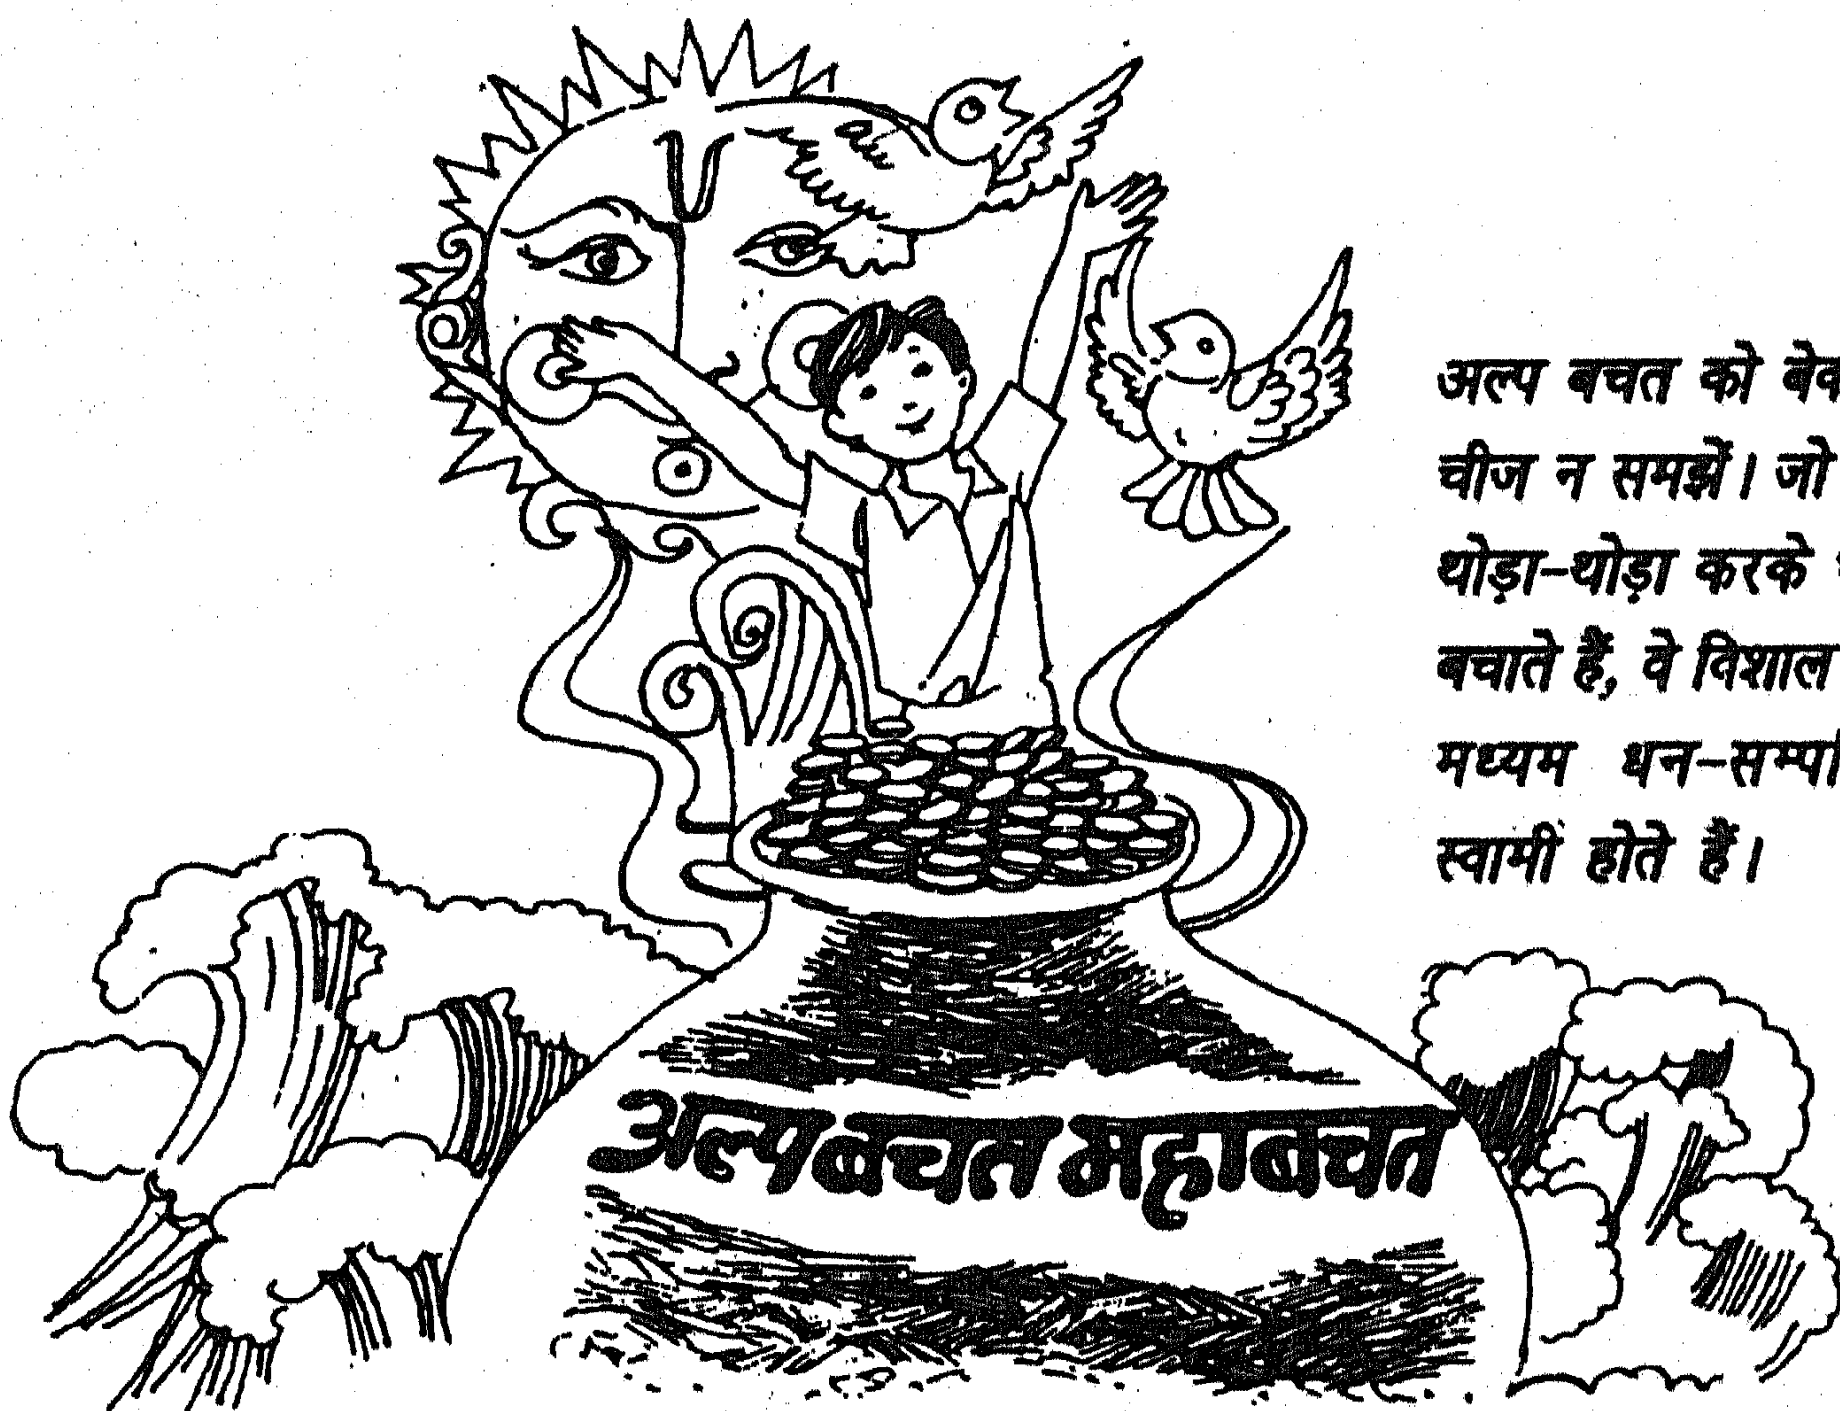 अल्प बचत को
चीज न समझें। जो
थोड़ा-थोड़ा करके
बचाते हैं, वे विशाल
मध्यम
स्वामी होते हैं।
अल्पबचत महाबचत